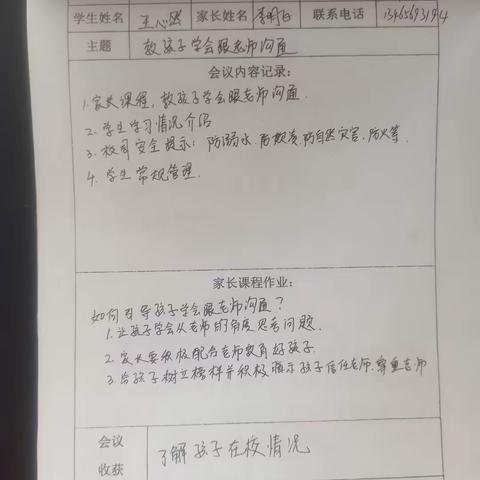 学生姓名 王心 家长姓名 李 联系电话
主题 教孩子学会跟老师沟通
会议内容记录:
1.家长课程,教孩子学会跟老师沟通.
2.学生学习情况介绍
3.校园安全提示:防溺水.防欺凌.防自然灾害.防火等.
4.学生常规管理.
家长课程作业:
如何引导孩子学会跟老师沟通?
1.让孩子学会从老师的角度思考问题.
2.家长要积极配合老师教育好孩子.
3.给孩子树立榜样并积极暗示孩子信任老师.尊重老师
会议
收获
了解孩子在校情况